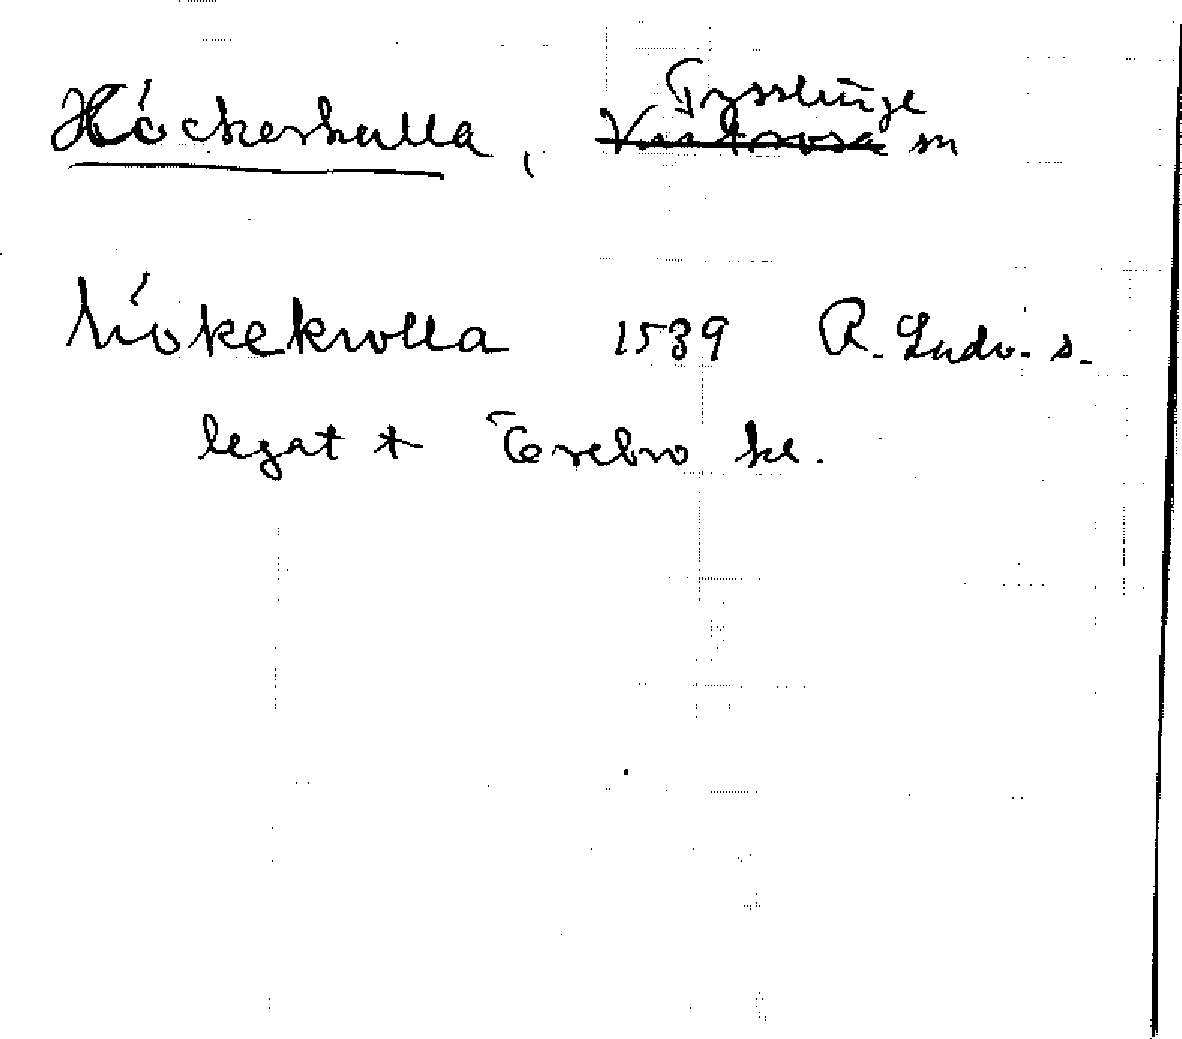 Höckerkulla, Tysslinge sn
hökekrolla 1539 R. Ludv. s.
legat t Örebro kl.